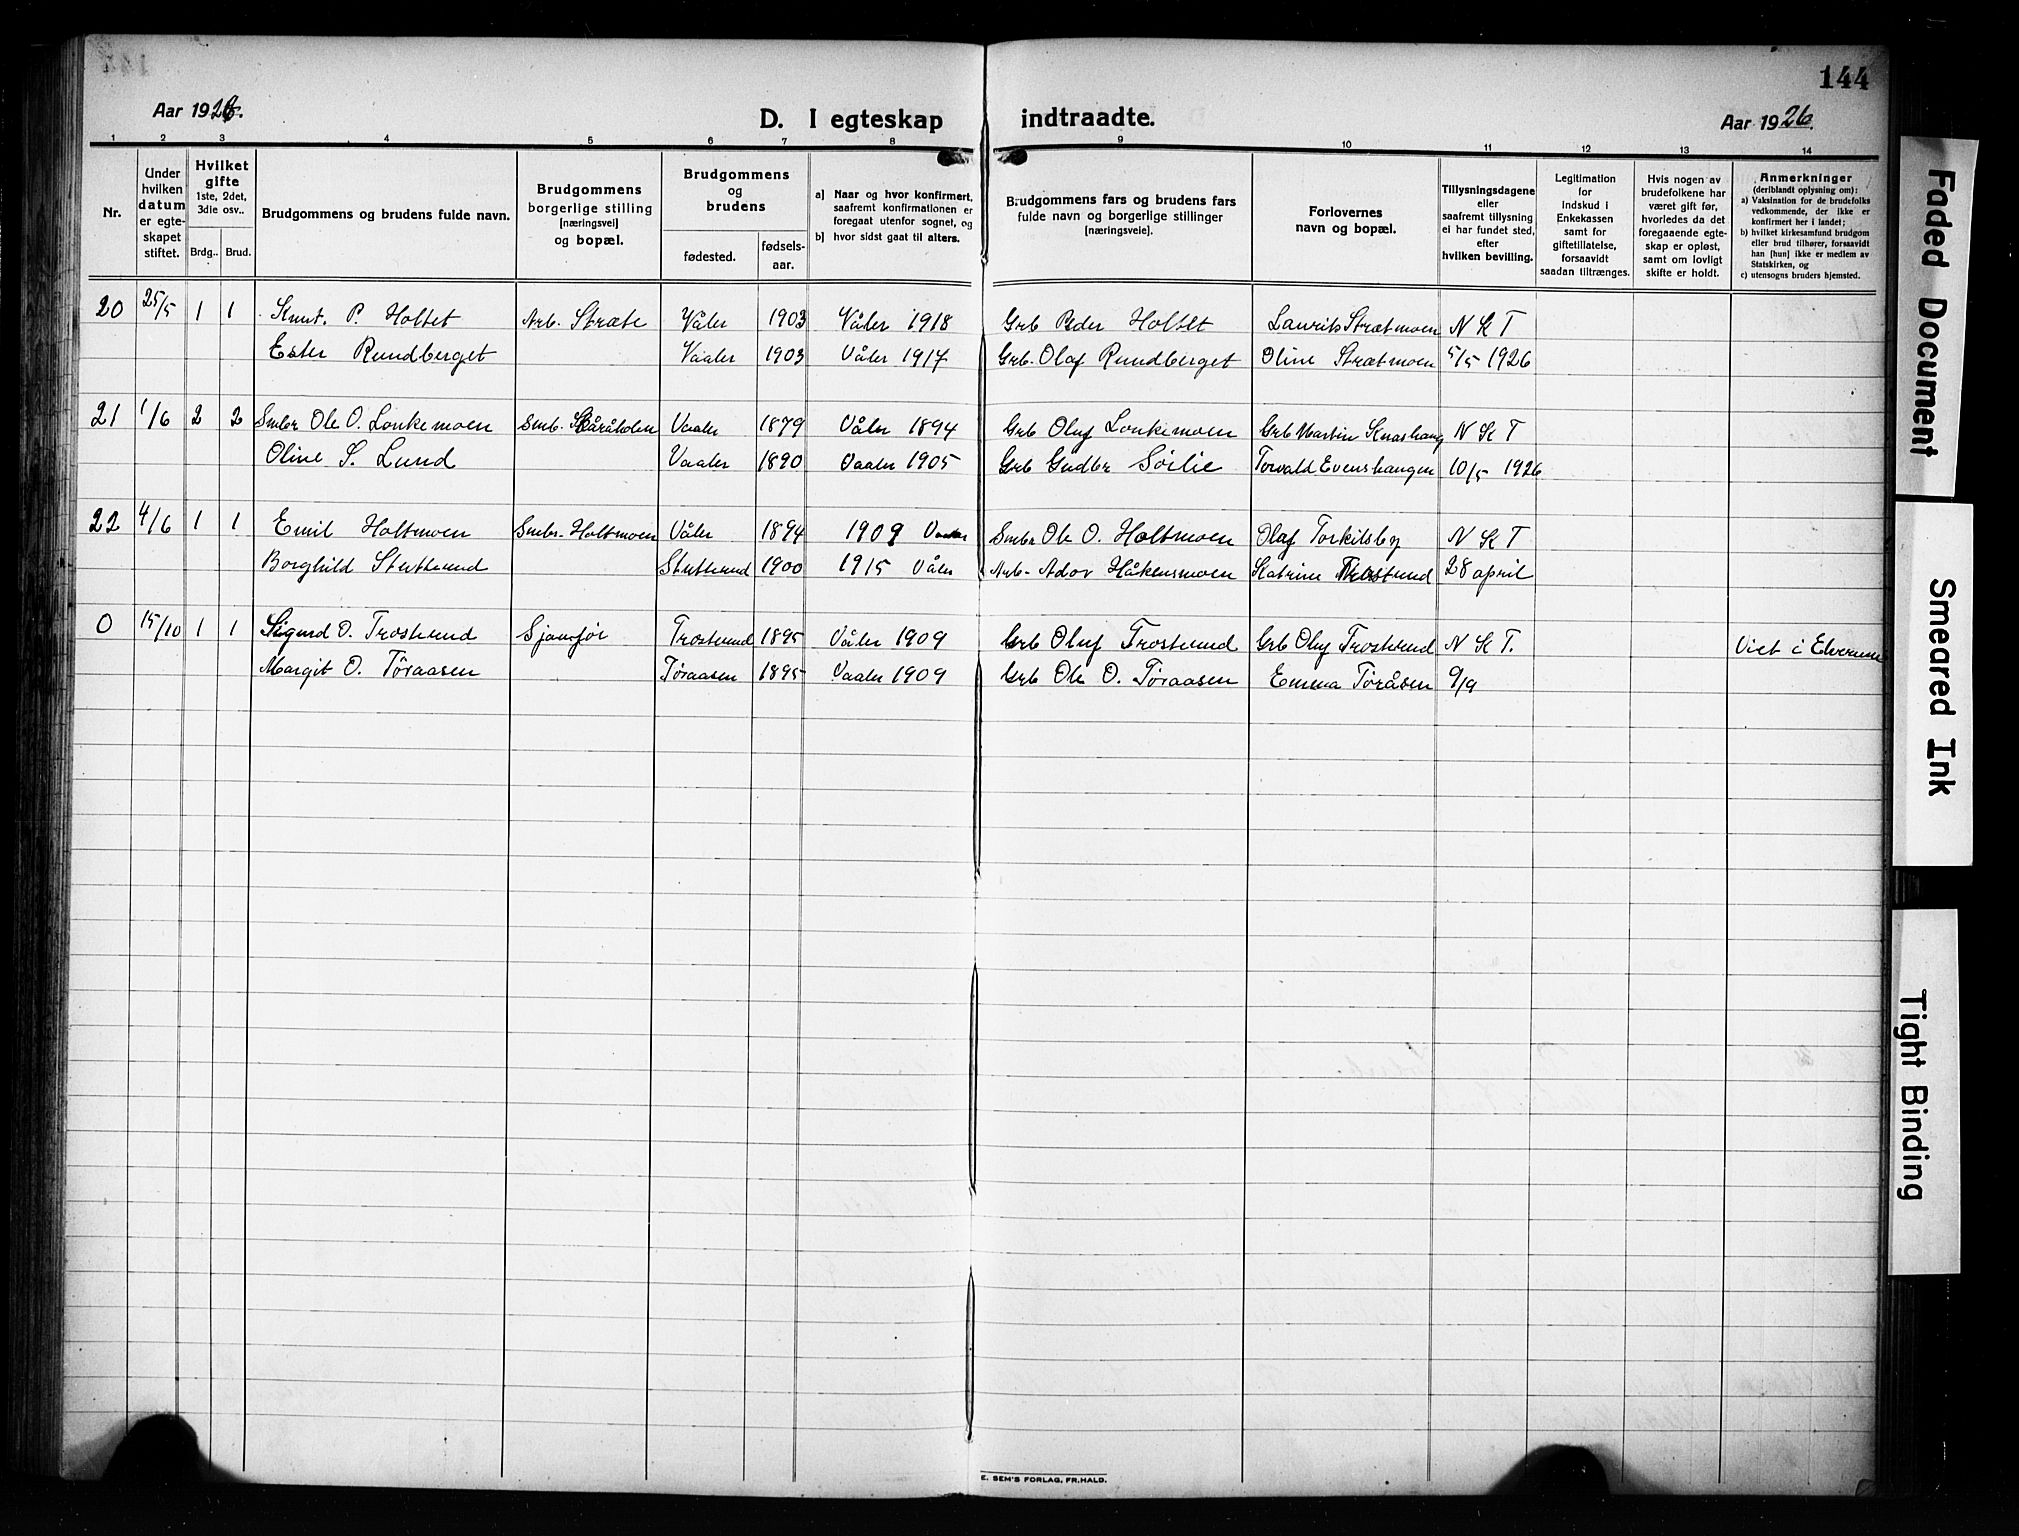 144
Aar 1926.
D. I egteskap indtraadte.
Aar 1926.
1 2 3 4 5 6 7 8 9 10 11 12 13 14
Nr.
Under hvilken datum er egte-skapet stiftet.
Hvilket gifte 1ste, 2det, 3die osv..
Brdg.. Brud.
Brudgommens og brudens fulde navn.
Brudgommens borgerlige stilling [næringsvei] og bopæl.
Brudgommens og brudens
fødested.
fødsels-aar.
a) Naar og hvor konfirmert, saafremt konfirmationen er foregaat utenfor sognet, og
b) hvor sidst gaat til alters.
Brudgommens fars og brudens fars fulde navn og borgerlige stillinger [næringsveie].
Forlovernes navn og bopæl.
Tillysningsdagene eller saafremt tillysning ei har fundet sted, efter hvilken bevilling.
Legitimation for indskud i Enkekassen samt for giftetillatelse, forsaavidt saadan tiltrænges.
Hvis nogen av brudefolkene har været gift før, hvorledes da det foregaaende egte-skap er opløst, samt om lovligt skifte er holdt.
Anmerkninger (deriblandt oplysning om):
a) Vaksination for de brudefolks vedkommende, der ikke er konfirmert her i landet;
b) hvilket kirkesamfund brudgom eller brud tilhører, forsaavidt han [hun] ikke er medlem av Statskirken, og
c) utensogns bruders hjemsted.
20 25/5 1 1 Knut. P. Holtet Arb. Stræte Våler 1903 Våler 1918 Grb Peder Holtet Laurits Strætmoen N K T
Ester Rundberget Vaaler 1903 Våler 1917 Grb. Olaf Rundberget Oline Strætmoen 5/5 1926
21 1/6 2 2 Smbr Ole O. Lonkemoen Smb. Skåråholen Vaaler 1879 Våler 1894 Grb Oluf Lonkemoen Grb Martin Knashaug N K T
Oline S. Lund Vaaler 1890 Vaaler 1905 Grb Gudbr Sørlie Torvald Evenshaugen 10/5 1926
22 4/6 1 1 Emil Holtmoen Smbr. Holtmoen Våler 1894 1909 Vaaler Smbr Ole O. Holtmoen Olaf Torkilsby N K T
Borghild Stuttrund Stuttrund 1900 1915 Våler Arb- Ador Håkensmoen Katrine Trostrund 28 april
0 15/10 1 1 Sigurd O. Trostrund Sjauføir Trostrund 1895 Våler 1909 Grb Oluf Trostrund Grb Oluf Trostrund N K T. Viet i Elverum
Margit O. Tøraasen Tøraasen 1895 Vaaler 1909 Grb Ole O. Tøraasen Emma Tøråsen 9/9
E. SEM'S FORLAG, FR.HALD.
Faded Document
Smeared Ink
Tight Binding